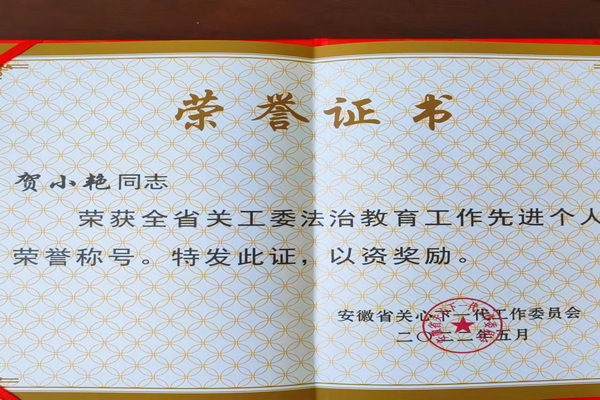 荣誉证书
贺小艳同志
荣获全省关工委法治教育工作先进个人
荣誉称号。特发此证，以资奖励。
安徽省关心下一代工作委员会
二〇二二年五月